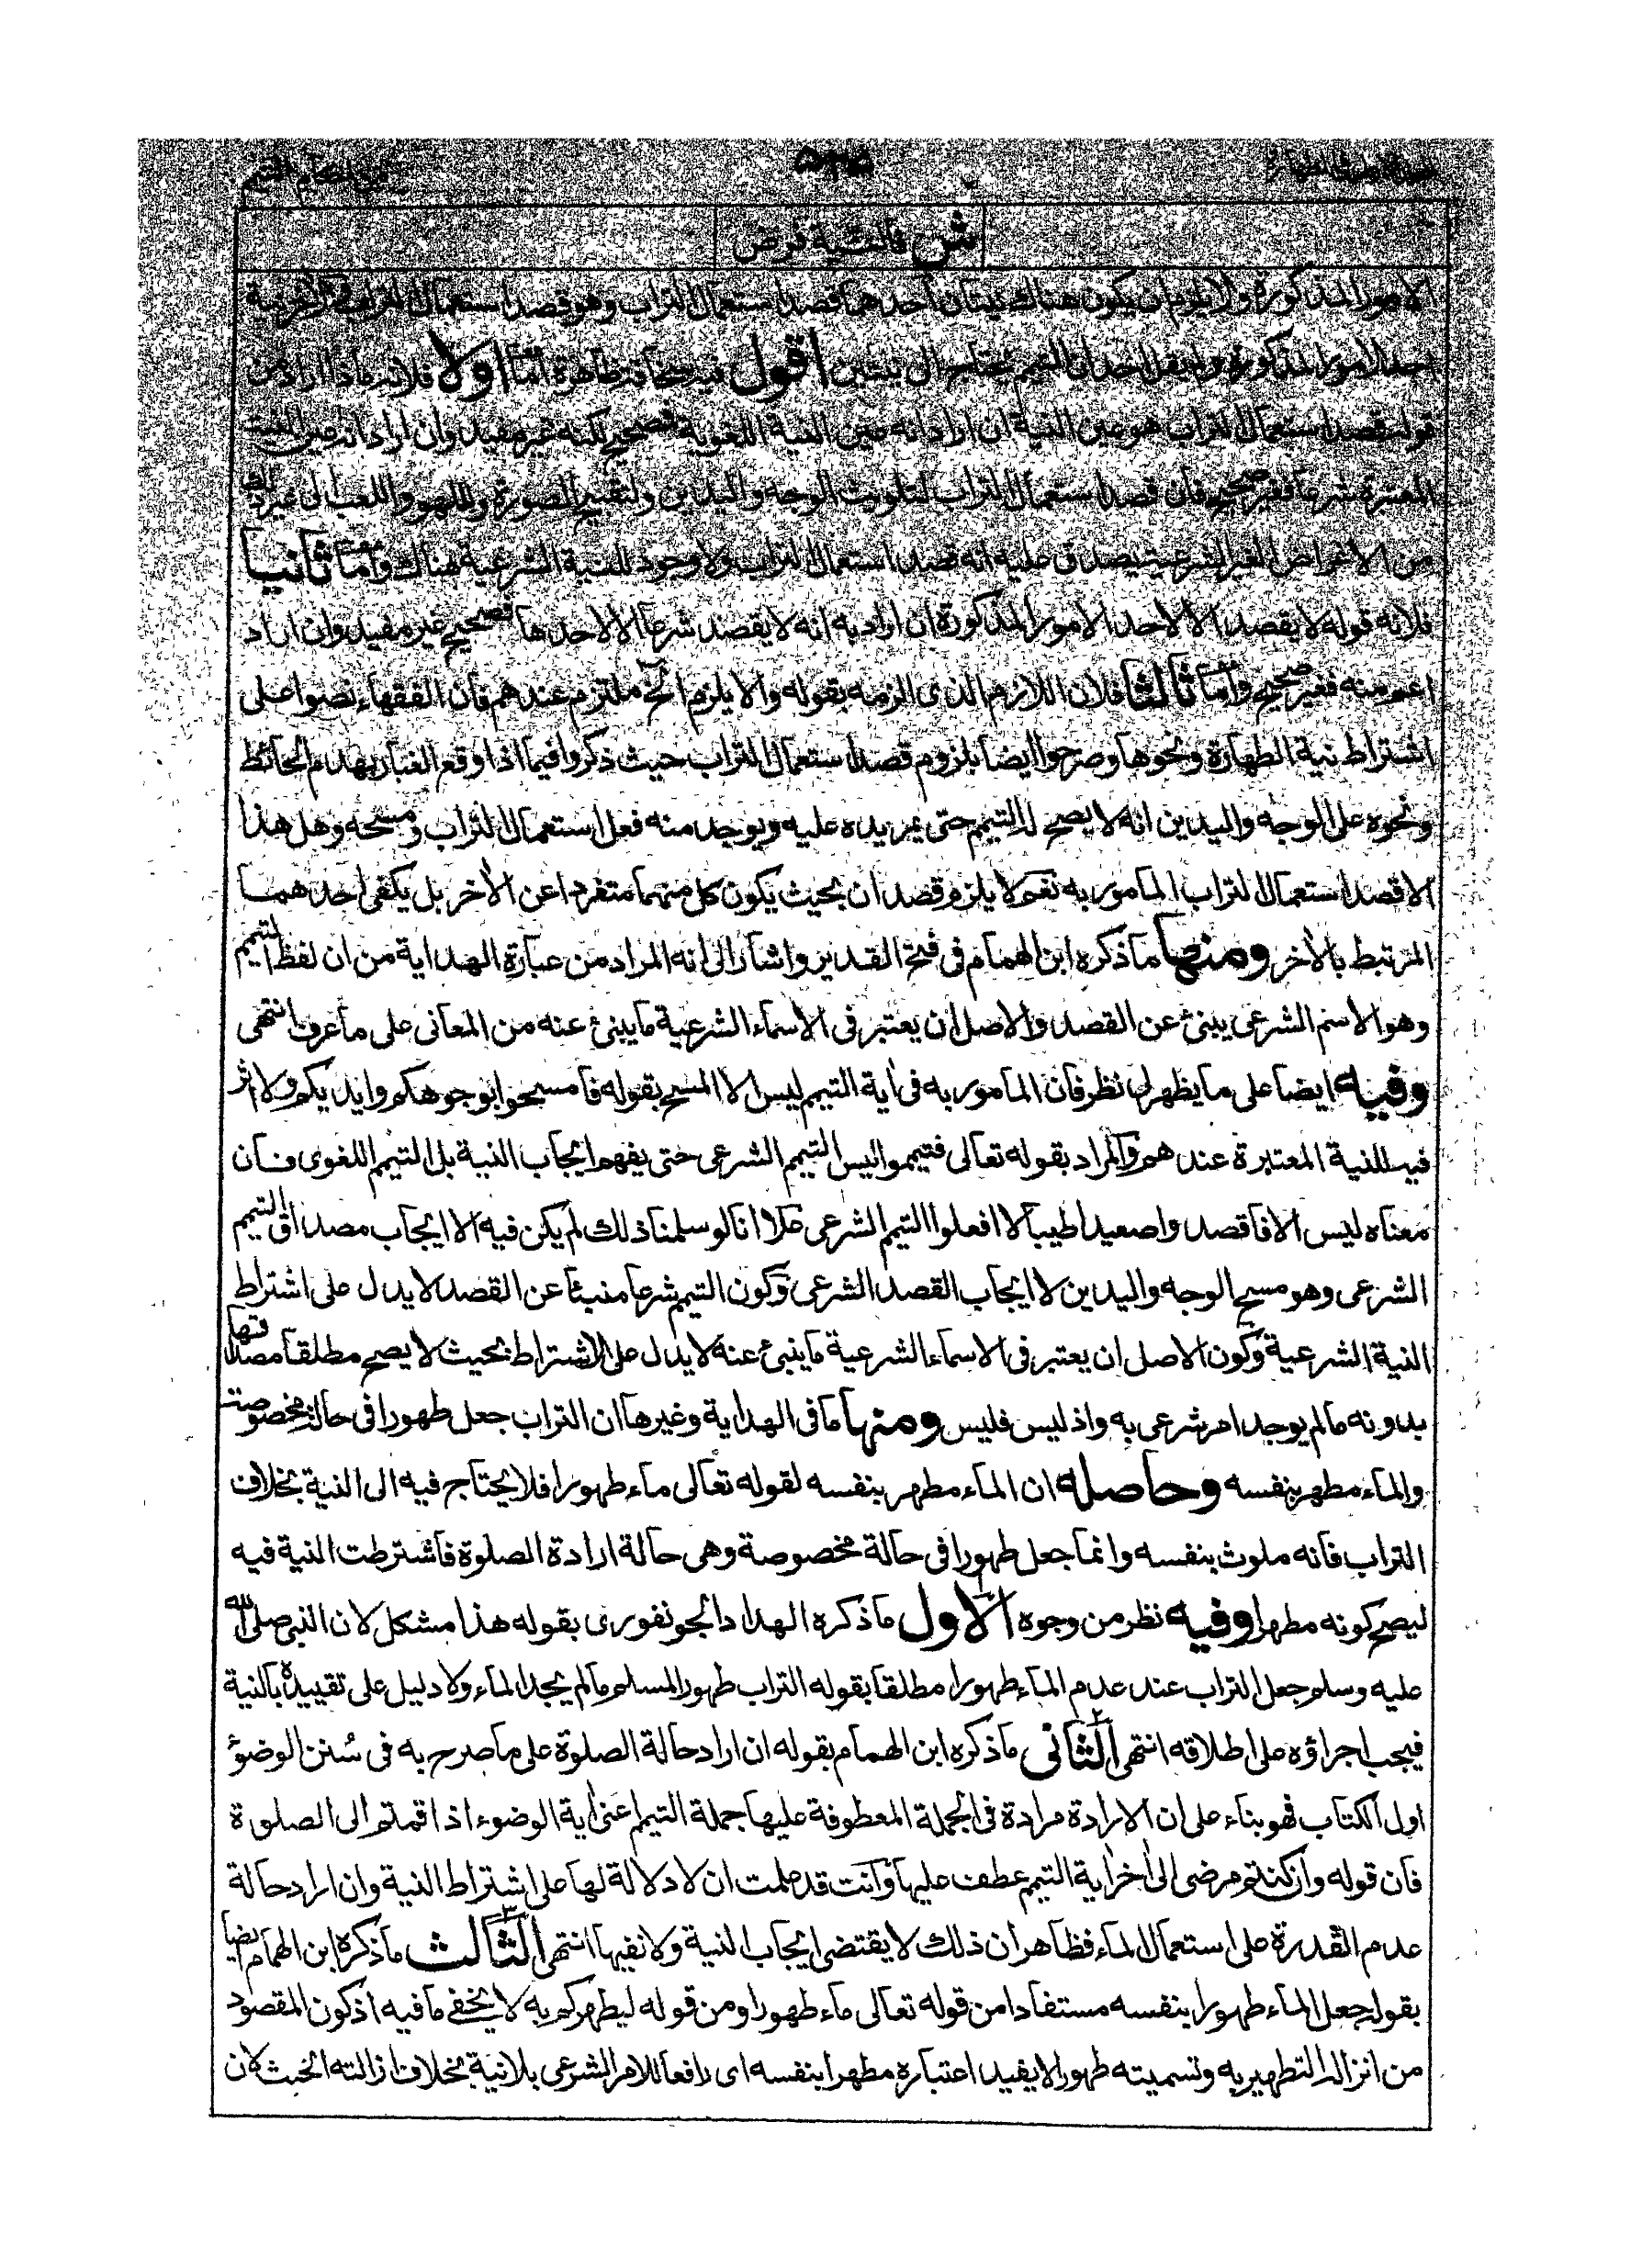 ٥٢٥
ش فالنية فرض
الامور المذكورة والا يلزم ان يكون هناك نيتان احدهما قصد استعمال التراب وهو قصد استعمال التراب نية
احد الامور المذكورة ولم يقل احد ان التيمم يحتاج الى نيتين اقول فيه سخافة ظاهرة اما اولا فلانه ماذا اراد من
قوله قصد استعمال التراب هو عين النية ان اراد انه عين النية اللغوية فصحيح لكنه غير مفيد وان اراد انه عين النية
المعتبرة شرعا فغير صحيح فان قصد استعمال التراب لتلويث الوجه واليدين ولتقبيح الصورة وللهو واللعب الى غير ذلك
من الاغراض الغير الشرعية يصدق عليه انه قصد استعمال التراب ولا وجود للنية الشرعية هناك واما ثانيا
فلانه قوله لا يقصد الا لاحد الامور المذكورة ان اراد به انه لا يقصد شرعا الا لاحدها فصحيح غير مفيد وان اراد
اعم منه فغير صحيح واما ثالثا فلان اللازم الذى الزمه بقوله والا يلزم الخ ملتزم عندهم فان الفقهاء نصوا على
اشتراط نية الطهارة ونحوها وصرحوا ايضا بلزوم قصد استعمال التراب حيث ذكروا فيما اذا وقع الغبار بهدم الحائط
ونحوه على الوجه واليدين انه لا يصح له التيمم حتى يمر يده عليه ويوجد منه فعل استعمال التراب ومسحه وهل هذا
الا قصد استعمال التراب المامور به نعم لا يلزم قصدان بحيث يكون كل منهما متفردا عن الأخر بل يكفى احدهما
المرتبط بالأخر ومنها ما ذكره ابن الهمام فى فتح القدير واشار الى انه المراد من عبارة الهداية من ان لفظ التيمم
وهو الاسم الشرعى ينبئ عن القصد والاصل ان يعتبر فى الاسماء الشرعية ما ينبئ عنه من المعانى على ما عرف انتهى
وفيه ايضا على ما يظهر لى نظر فان المامور به فى أية التيمم ليس الا المسح بقوله فامسحوا بوجوهكم وايديكم ولا اثر
فيه للنية المعتبرة عندهم والمراد بقوله تعالى فتيمموا ليس التيمم الشرعى حتى يفهم ايجاب النية بل التيمم اللغوى فان
معناه ليس الا فاقصدوا صعيدا طيبا لا افعلوا التيمم الشرعى علا انا لو سلمنا ذلك لم يكن فيه الا ايجاب مصداق التيمم
الشرعى وهو مسح الوجه واليدين لا ايجاب القصد الشرعى وكون التيمم شرعا منبئا عن القصد لا يدل على اشتراط
النية الشرعية وكون الاصل ان يعتبر فى الاسماء الشرعية ما ينبئ عنه لا يدل على الاشتراط بحيث لا يصح مطلقا مصداقها
بدونه ما لم يوجد امر شرعى به واذ ليس فليس ومنها ما فى الهداية وغيرها ان التراب جعل طهورا فى حالة مخصوصة
والماء مطهر بنفسه وحاصله ان الماء مطهر بنفسه لقوله تعالى ماء طهورا فلا يحتاج فيه الى النية بخلاف
التراب فانه ملوث بنفسه وانما جعل طهورا فى حالة مخصوصة وهى حالة ارادة الصلوة فاشترطت النية فيه
ليصح كونه مطهرا وفيه نظر من وجوه الاول ما ذكره الهداد الجونفورى بقوله هذا مشكل لان النبى صلى الله
عليه وسلم جعل التراب عند عدم الماء طهورا مطلقا بقوله التراب طهور المسلم ما لم يجد الماء ولا دليل على تقييده بالنية
فيجب اجراؤه على اطلاقه انتهى الثانى ما ذكره ابن الهمام بقوله ان اراد حالة الصلوة على ما صرح به فى سنن الوضوء
اول الكتاب فهو بناء على ان الارادة مرادة فى الجملة المعطوفة عليها جملة التيمم اعنى أية الوضوء اذا قمتم الى الصلوة
فان قوله وان كنتم مرضى الى أخر أية التيمم عطف عليها وانت قد علمت ان لا دلالة لها على اشتراط النية وان اراد حالة
عدم القدرة على استعمال الماء فظاهر ان ذلك لا يقتضى ايجاب النية ولا نفيها انتهى الثالث ما ذكره ابن الهمام ايضا
بقوله جعل الماء طهورا بنفسه مستفادا من قوله تعالى ماء طهورا ومن قوله ليطهركم به لا يخفى ما فيه اذ كون المقصود
من انزاله التطهير به وتسميته طهورا لا يفيد اعتباره مطهرا بنفسه اى رافعا للامر الشرعى بلا نية بخلاف ازالته الخبث لان